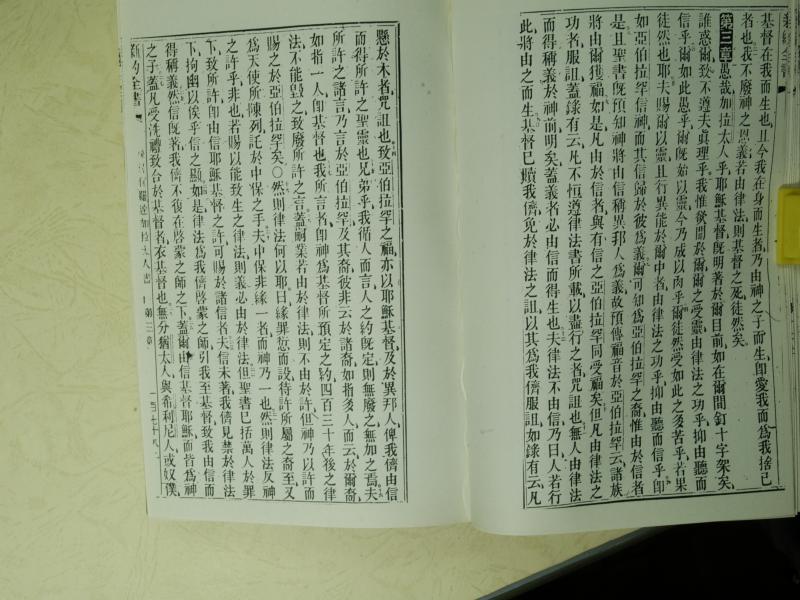 新約全書
基督在我而生也且今我在身而生者乃由神之子而生卽愛我而爲我捨已
者也我不廢神之恩義若由律法則基督之死徒然矣
第三章愚哉加拉太人乎耶穌基督旣明著於爾目前如在爾間釘十字架矣
誰惑爾致不遵夫眞理乎我惟欲聞於爾爾之受靈由律法之功乎抑由聽而
信乎爾如此愚乎爾旣始以靈今乃成以肉乎爾徒然受如此之多苦乎若果
徒然也耶夫賜爾以靈且行異能於爾中者由律法之功乎抑由聽而信乎卽
如亞伯拉罕信神而其信歸於彼爲義爾可知爲亞伯拉罕之裔惟由於信者
是且聖書旣預知神將由信稱異邦人爲義故預傳福音於亞伯拉罕云諸族
將由爾獲福如是凡由於信者與有信之亞伯拉罕同受福矣但凡由律法之
功者服詛蓋錄有云凡不恒遵律法書所載以盡行之者咒詛也無人由律法
而得稱義於神前明矣蓋義者必由信而得生也夫律法不由信乃曰人若行
此將由之而生基督已贖我儕免於律法之詛以其爲我儕服詛如錄有云凡
懸於木者咒詛也致亞伯拉罕之福亦以耶穌基督及於異邦人俾我儕由信
而得所許之聖靈也兄弟乎我循人而言人之約旣定則無廢之無加之焉夫
所許之諸言乃言於亞伯拉罕及其裔彼非云於諸裔如指多人而云於爾裔
如指一人卽基督也我所言者卽神爲基督所預定之約四百三十年後之律
法不能毀之致廢所許之言蓋嗣業若由於律法則不由於許但神乃以許而
賜之於亞伯拉罕矣○然則律法何以耶曰緣罪愆而設待許所屬之裔至又
爲天使所陳列託於中保之手夫中保非緣一者而神乃一也然則律法反神
之許乎非也若賜以能致生之律法則義必由於律法但聖書已括萬人於罪
下致所許卽由信耶穌基督之許可賜於諸信者夫信未著我儕見禁於律法
下拘幽以俟乎信之顯如是律法爲我儕啓蒙之師引我至基督致我由信而
得稱義然信旣著我儕不復在啓蒙之師之下蓋爾由信基督耶穌而皆爲神
之子蓋凡受洗禮致合於基督者衣基督也無分猶太人與希利尼人或奴僕
新約全書 達加拉太人書 第三章